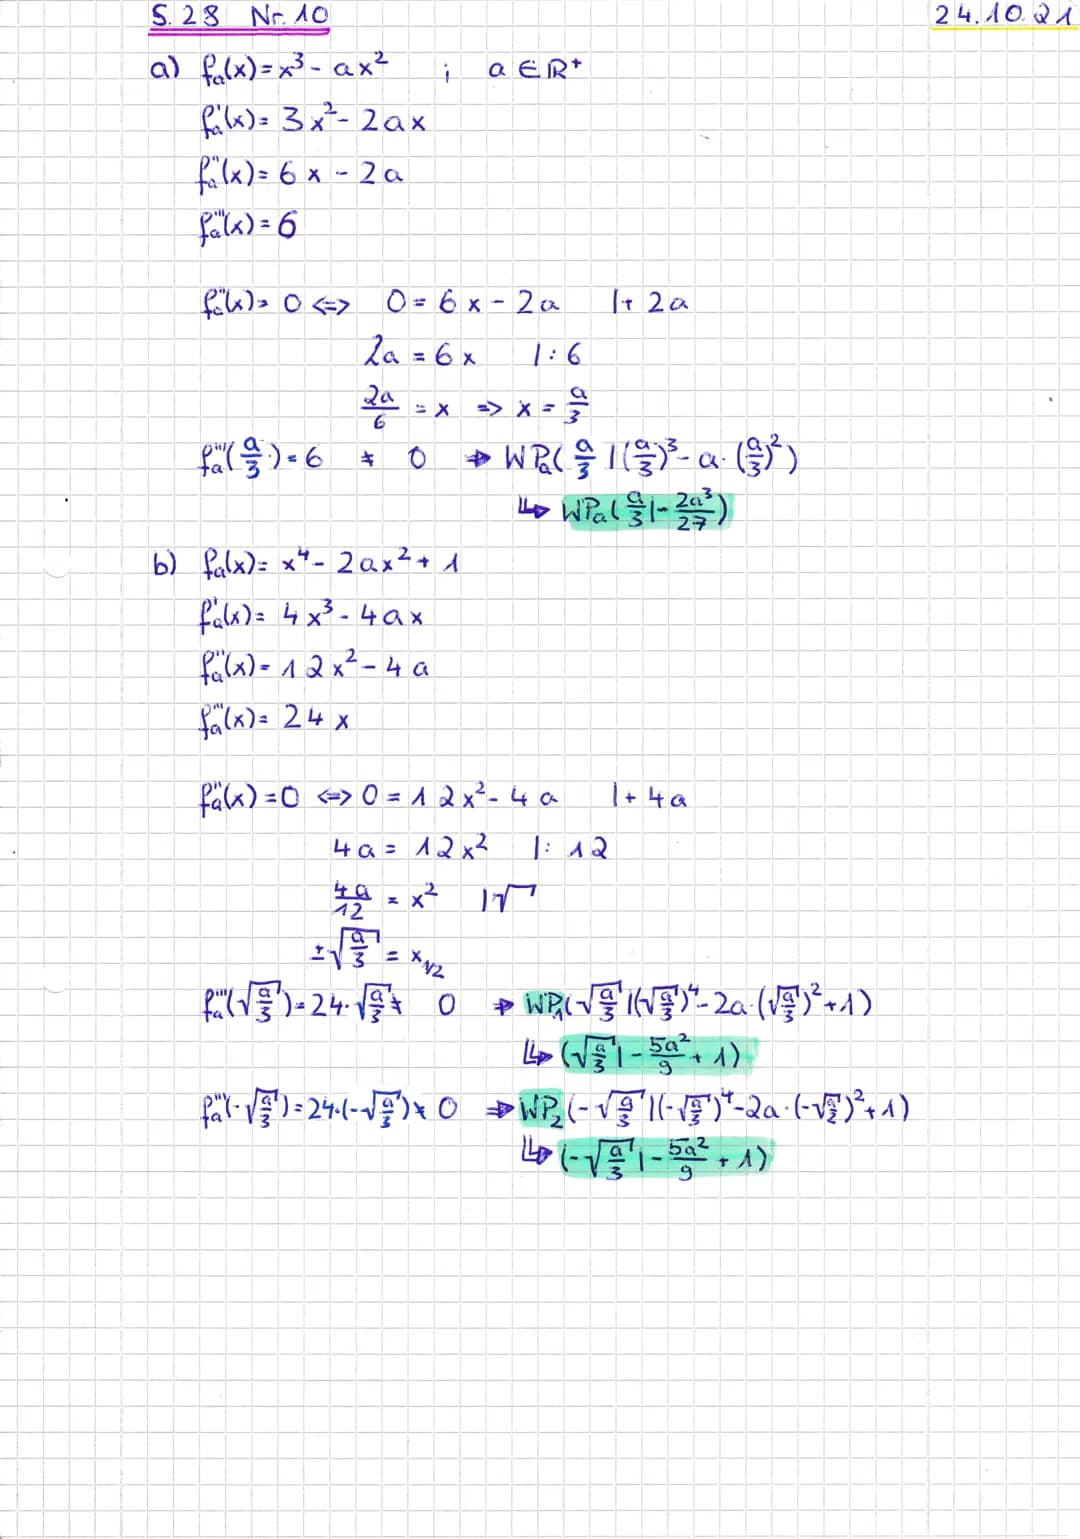 S. 28 Nr. 10 24.10.21
a) fₐ(x) = x³ - ax² ; a ∈ ℝ⁺
fₐ'(x) = 3x² - 2ax
fₐ''(x) = 6x - 2a
fₐ'''(x) = 6
fₐ''(x) = 0 <=> 0 = 6x - 2a |+ 2a
2a = 6x |: 6
2a/6 = x => x = a/3
fₐ'''(a/3) = 6 ≠ 0 => WPₐ(a/3 | (a/3)³ - a · (a/3)²)
↳ WPₐ(a/3 | - 2a³/27)
b) fₐ(x) = x⁴ - 2ax² + 1
fₐ'(x) = 4x³ - 4ax
fₐ''(x) = 12x² - 4a
fₐ'''(x) = 24x
fₐ''(x) = 0 <=> 0 = 12x² - 4a |+ 4a
4a = 12x² |: 12
4a/12 = x² |√
±√(a/3) = x₁/₂
fₐ'''(√(a/3)) = 24 · √(a/3) ≠ 0 => WP₁(√(a/3) | (√(a/3))⁴ - 2a · (√(a/3))² + 1)
↳ (√(a/3) | - 5a²/9 + 1)
fₐ'''(-√(a/3)) = 24 · (-√(a/3)) ≠ 0 => WP₂(-√(a/3) | (-√(a/3))⁴ - 2a · (-√(a/2))² + 1)
↳ (-√(a/3) | - 5a²/9 + 1)